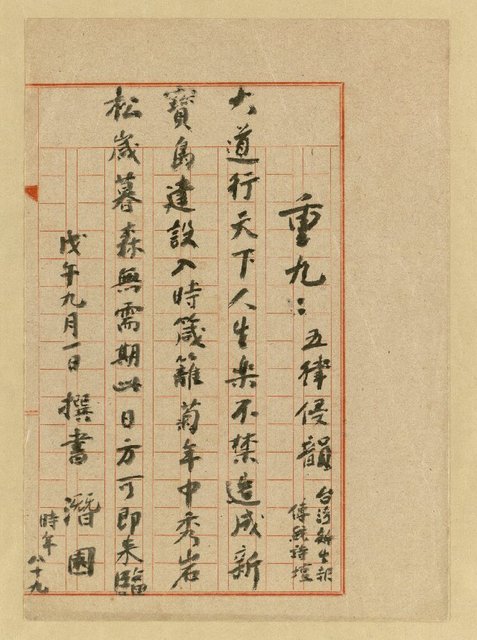 重九：五律侵韻 台湾新生報
傳統詩壇
大道行天下人生楽不禁造成新
寶島建設入時箴籬菊年中秀岩
松歲暮森無需期此日方可即来臨
戊午九月一日撰書 潛園
時年八十九